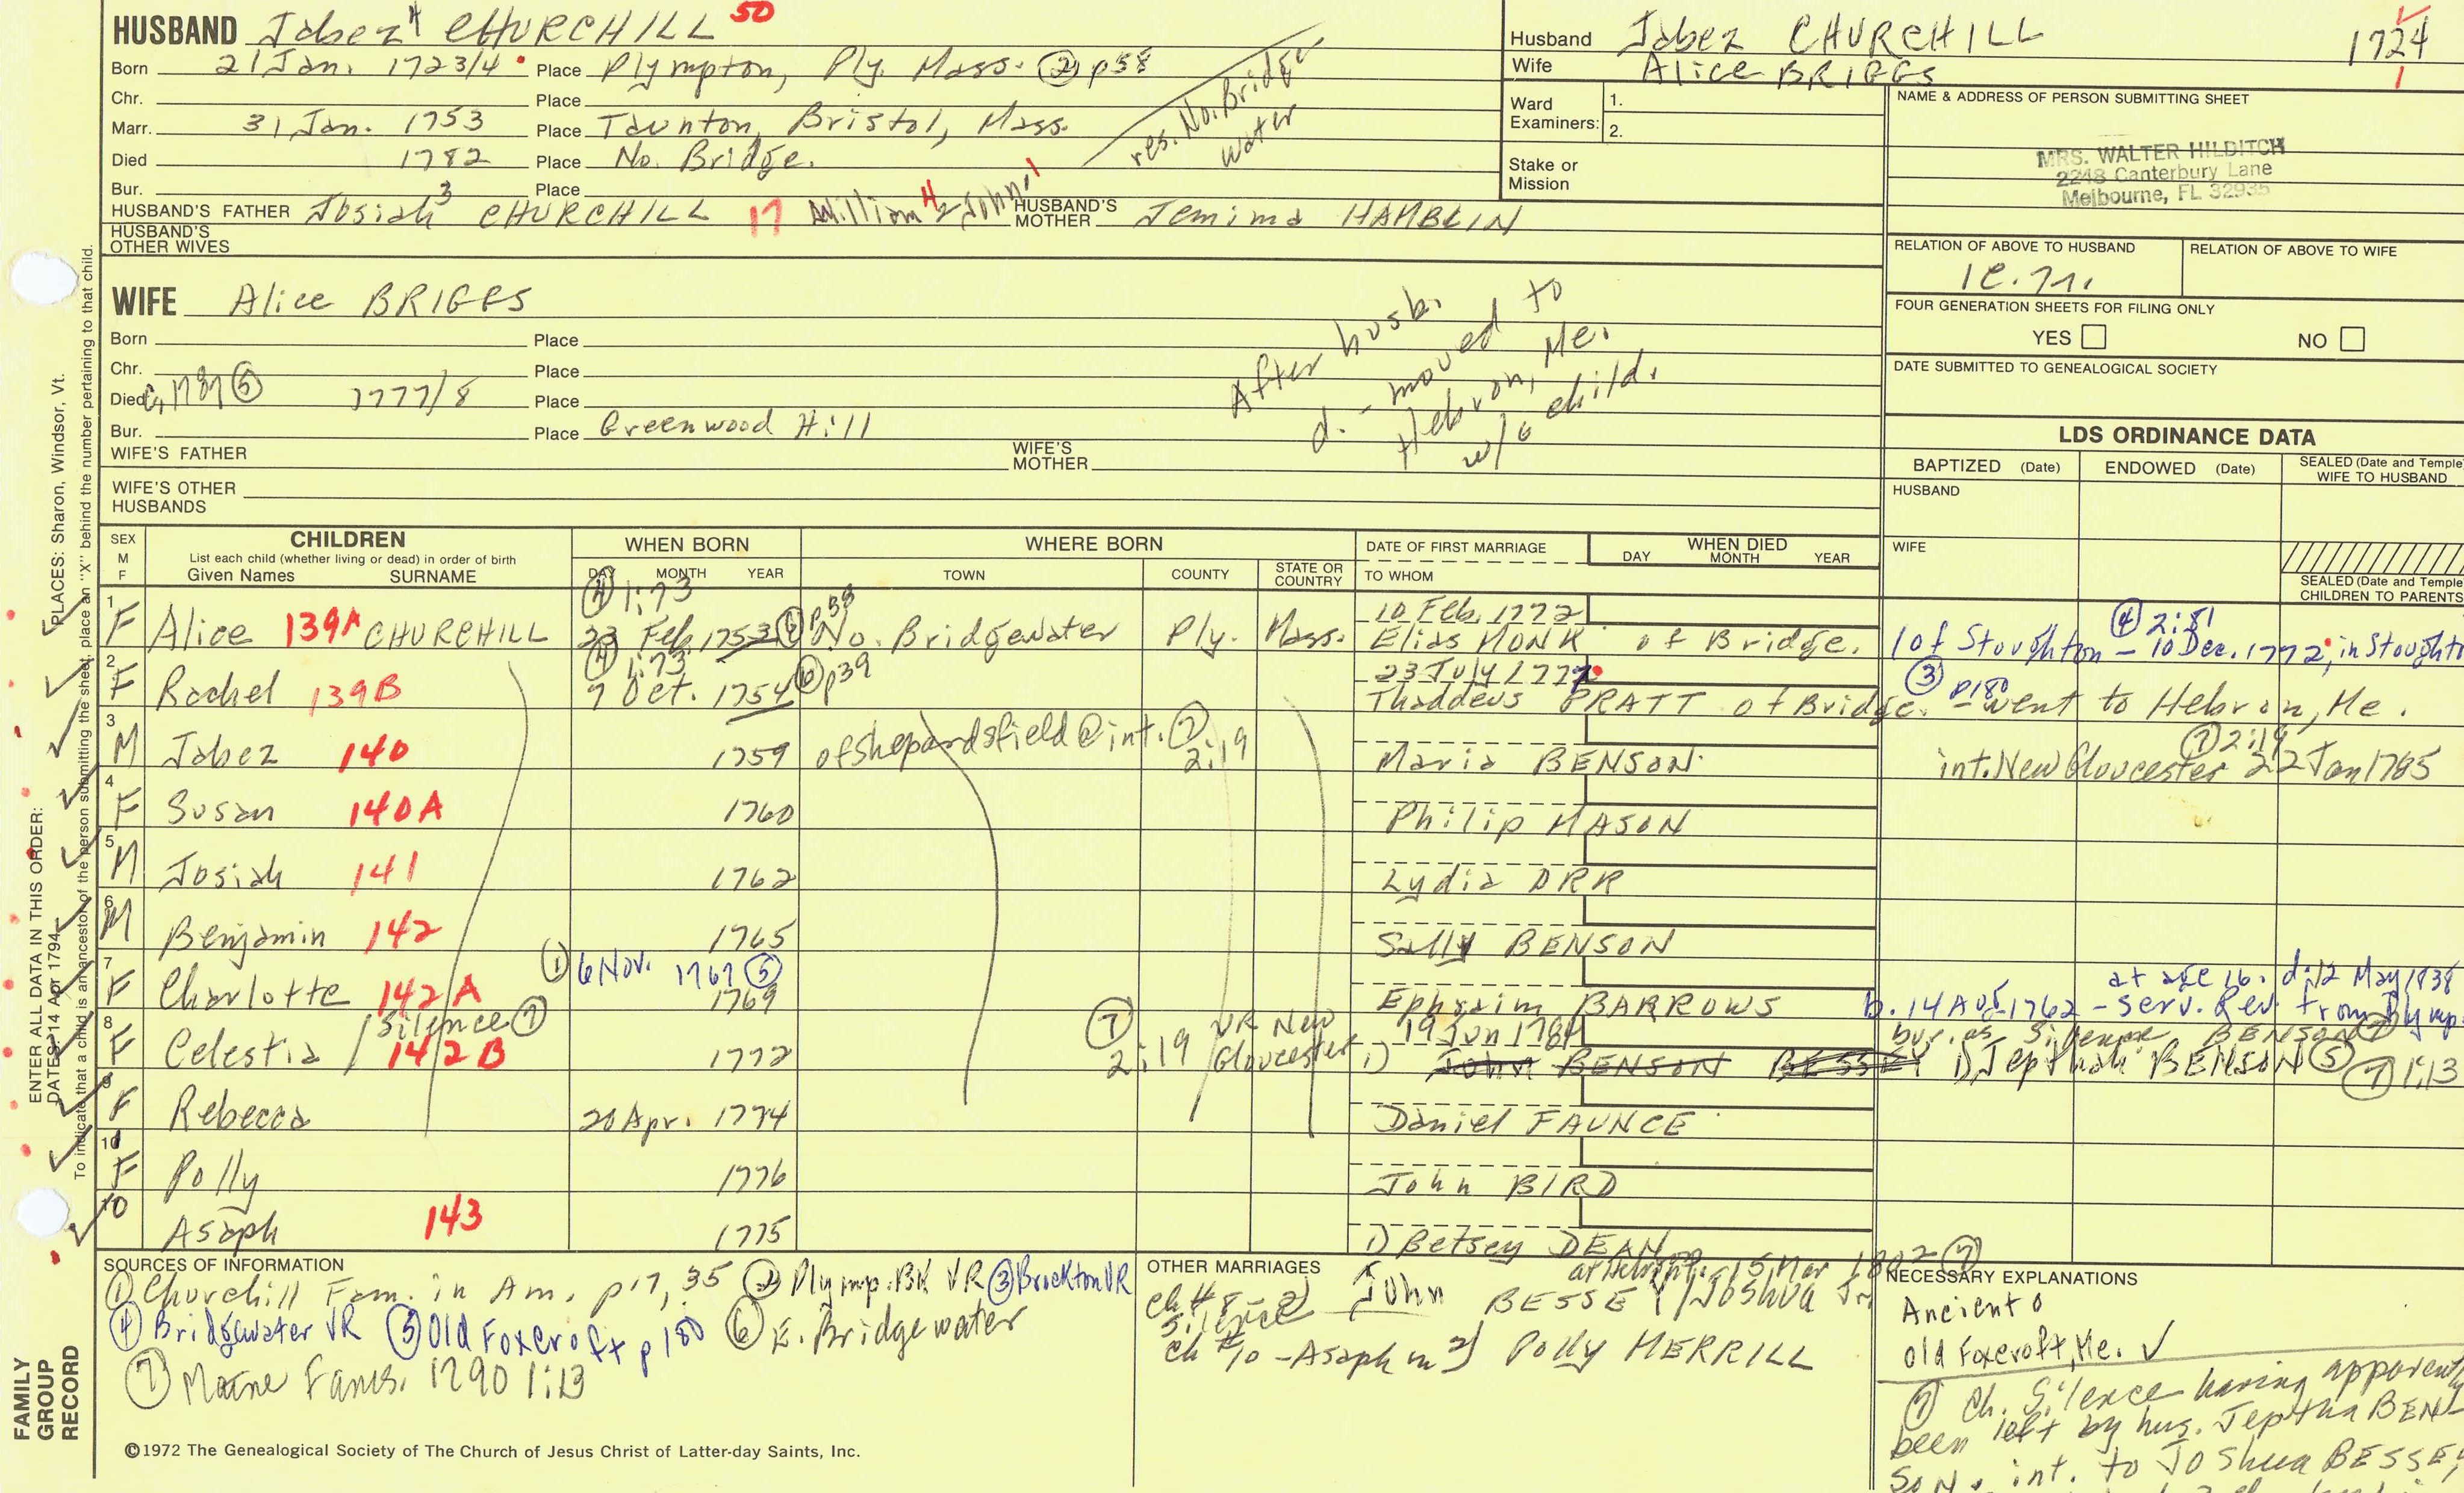 HUSBAND Jabez⁴ CHURCHILL 50
Born 21 Jan. 1723/4 Place Plympton, Ply. Mass. ② p58
Chr. Place
Marr. 31 Jan. 1753 Place Taunton, Bristol, Mass.
Died 1782 Place No. Bridge.
res. No. Bridge
water
Bur. Place
HUSBAND'S FATHER Josiah³ CHURCHILL 17 William 4 2 John 1 HUSBAND'S MOTHER Jemima HAMBLIN
HUSBAND'S OTHER WIVES
Husband Jabez CHURCHILL 1724
Wife Alice BRIGGS 1
Ward Examiners: 1.
2.
Stake or Mission
NAME & ADDRESS OF PERSON SUBMITTING SHEET
MRS. WALTER HILDITCH
2248 Canterbury Lane
Melbourne, FL 32935
RELATION OF ABOVE TO HUSBAND RELATION OF ABOVE TO WIFE
FOUR GENERATION SHEETS FOR FILING ONLY
YES NO
DATE SUBMITTED TO GENEALOGICAL SOCIETY
WIFE Alice BRIGGS
Born Place
Chr. Place
Died 1787 ⑤ 1777/8 Place
Bur. Place Greenwood Hill
WIFE'S FATHER WIFE'S MOTHER
WIFE'S OTHER HUSBANDS
After husb.
d. - moved to
Hebron, Me.
w/6 child.
LDS ORDINANCE DATA
BAPTIZED (Date) ENDOWED (Date) SEALED (Date and Temple) WIFE TO HUSBAND
HUSBAND
WIFE
SEALED (Date and Temple) CHILDREN TO PARENTS
SEX M F CHILDREN WHEN BORN WHERE BORN DATE OF FIRST MARRIAGE WHEN DIED
List each child (whether living or dead) in order of birth
Given Names SURNAME DAY MONTH YEAR TOWN COUNTY STATE OR COUNTRY TO WHOM DAY MONTH YEAR
④ 1:73 p38 10 Feb. 1772
1 F Alice 139A CHURCHILL 23 Feb. 1753 ⑥ No. Bridgewater Ply. Mass. Elias MONK of Bridge. / of Stoughton - 10 Dec. 1772, in Stoughto
④ 2:51
④ 1:73 ⑥ p39 23 July 1777
2 F Rachel 139B 7 Oct. 1754 Thaddeus PRATT of Bridge. - went to Hebron, Me.
③ p180
3 M Jabez 140 1759 of shepardsfield @ int. ⑦ 2:19 Maria BENSON int. New Gloucester 22 Jan 1785
⑦ 2:19
4 F Susan 140A 1760 Philip MASON
5 M Josiah 141 1762 Lydia ORR
6 M Benjamin 142 1765 Sally BENSON
① 6 Nov. 1767 ⑤
7 F Charlotte 142A 1769 Ephraim BARROWS b. 14 Aug 1762 - serv. Rev. from Plymp
at age 16. d. 12 May 1838
/ Silence ⑦ ⑦ 2:19 VR New Gloucester 19 Jun 1784
bur. as Silence BENSON ⑦
8 F Celestia 142B 1772 1) John BENSON BESSEY 1) Jepthah BENSON ⑤ ⑦ 1:13
9 F Rebecca 20 Apr. 1774 Daniel FAUNCE
10 F Polly 1776 John BIRD
10 Asaph 143 1775 1) Betsey DEAN
SOURCES OF INFORMATION
① Churchill Fam. in Am. p 17, 35 ② Plymp. BK VR ③ Brockton VR
④ Bridgewater VR ⑤ Old Foxcroft p 180 ⑥ E. Bridgewater
⑦ Maine Fams. 1790 1:13
©1972 The Genealogical Society of The Church of Jesus Christ of Latter-day Saints, Inc.
OTHER MARRIAGES
15 Mar 1802 ⑦
ch #8 - 2) John BESSEY / Joshua Jr
Silence
ch #10 - Asaph m 2) Polly MERRILL
NECESSARY EXPLANATIONS
Ancient
Old Foxcroft, Me. ✓
⑦ Ch. Silence having apparently
been left by hus. Jeptha BEN
SON, int. to JOShua BESSEY
ENTER ALL DATA IN THIS ORDER:
DATES: 14 Apr 1794 PLACES: Sharon, Windsor, Vt.
To indicate that a child is an ancestor of the person submitting the sheet, place an "X" behind the number pertaining to that child.
FAMILY
GROUP
RECORD